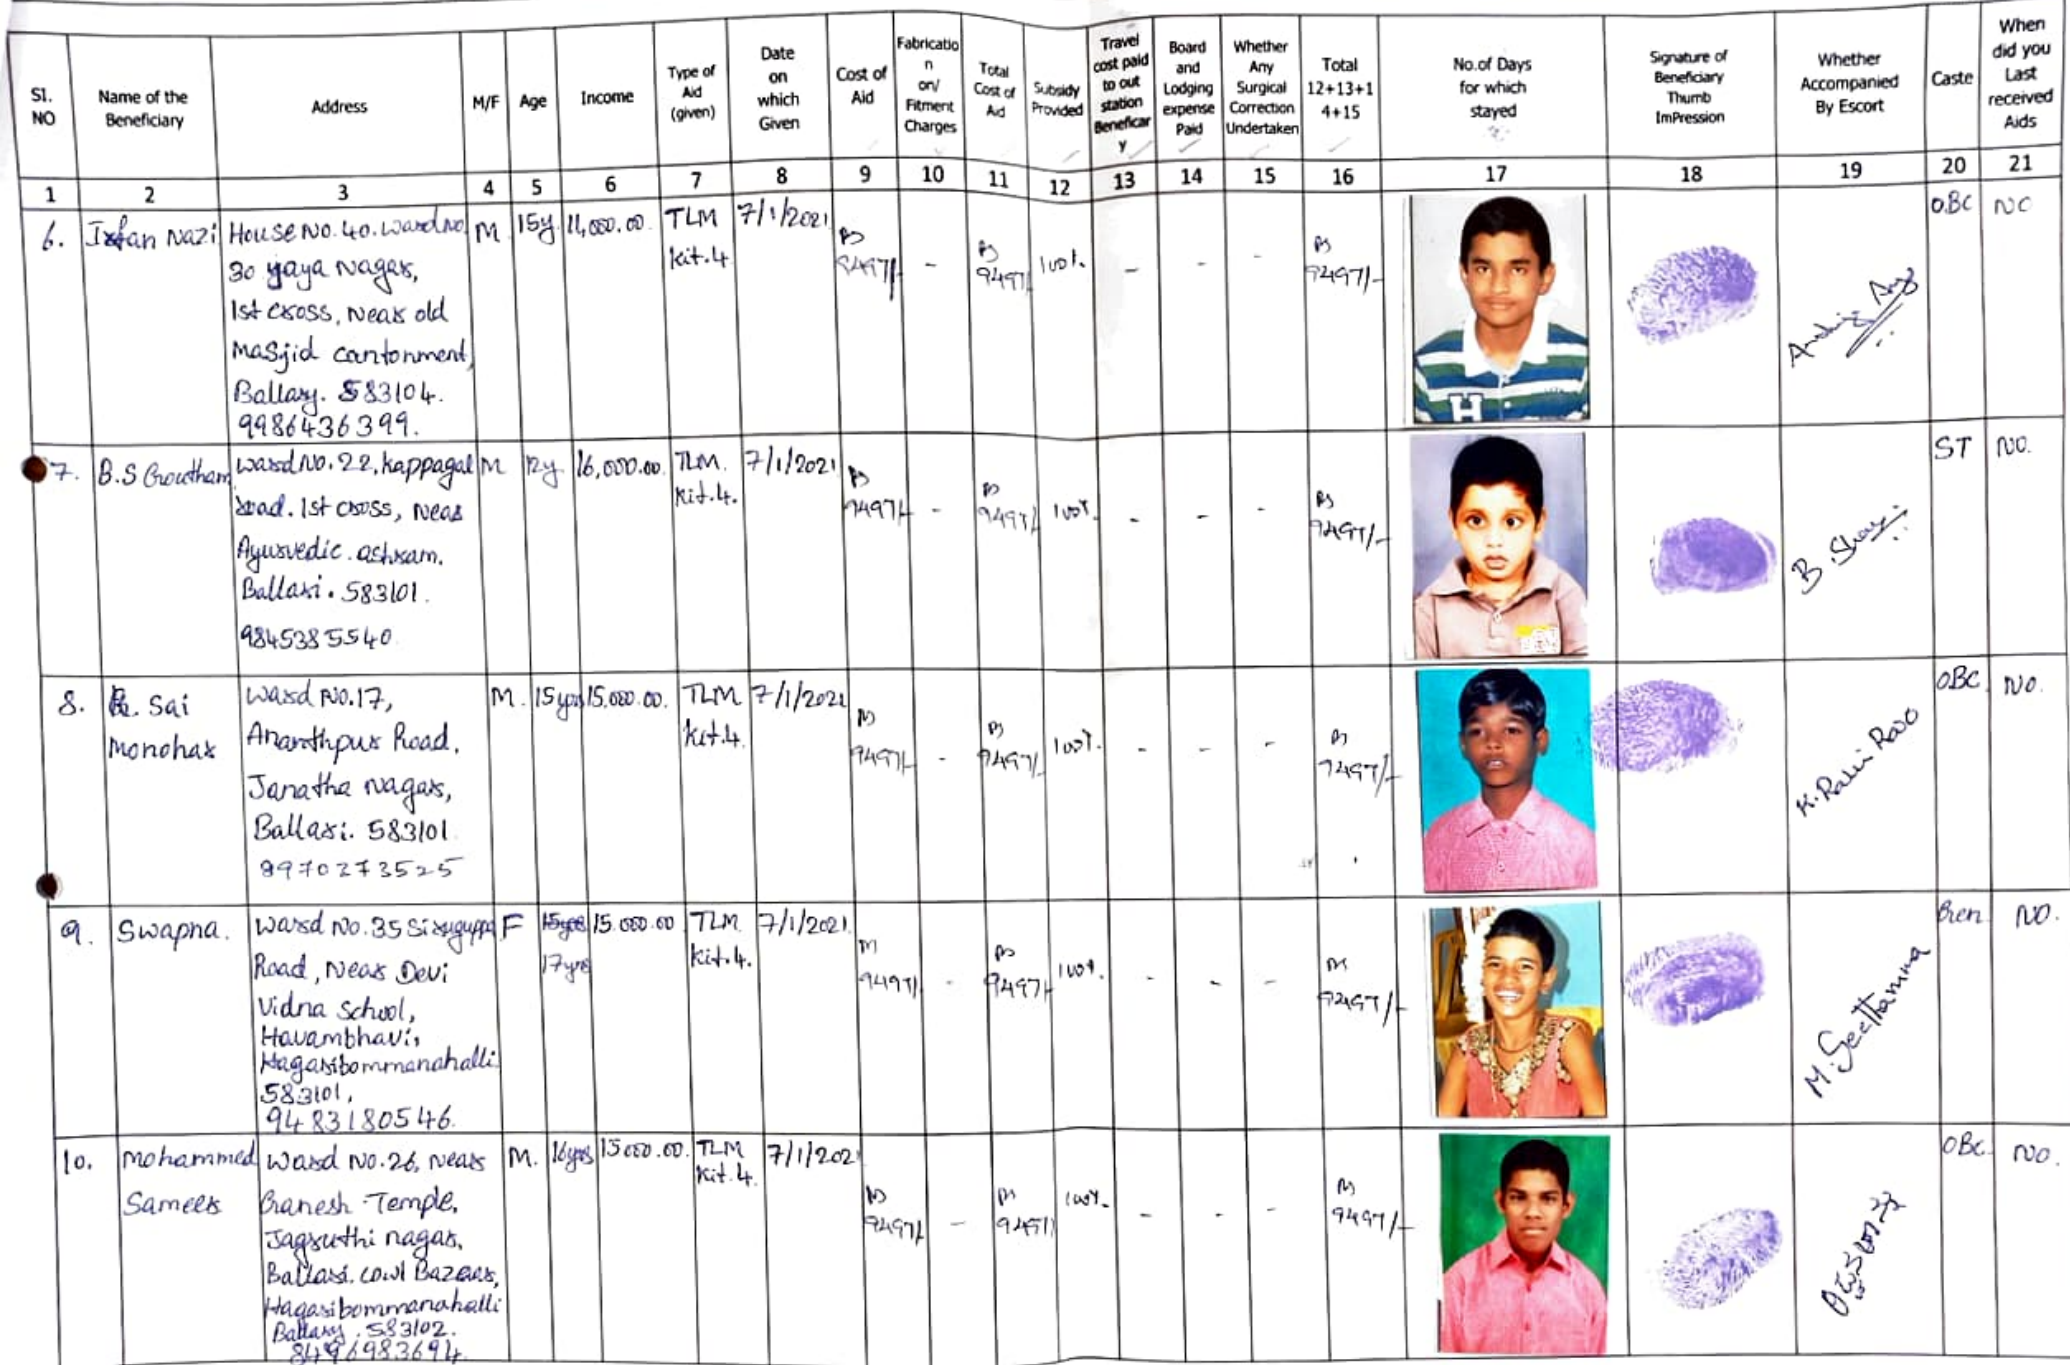 Sl. NO
Name of the Beneficiary
Address
M/F
Age
Income
Type of Aid (given)
Date on which Given
Cost of Aid
Fabricatio n on/ Fitment Charges
Total Cost of Aid
Subsidy Provided
Travel cost paid to out station Beneficar y
Board and Lodging expense Paid
Whether Any Surgical Correction Undertaken
Total 12+13+1 4+15
No.of Days for which stayed
Signature of Beneficiary Thumb ImPression
Whether Accompanied By Escort
Caste
When did you Last received Aids
1 2 3 4 5 6 7 8 9 10 11 12 13 14 15 16 17 18 19 20 21
6. Irfan Nazi
House No. 40. Ward No
30 jaya Nagar,
1st cross, Near old
Masjid cantonment,
Ballary. 583104.
9986436399.
M 15y. 11,000.00. TLM kit.4 7/1/2021
Rs 9497/- - Rs 9497/- 100%. - - - Rs 9497/-
OBC NO
7. B.S Goutham
Ward No. 22, Kappagal
road. 1st cross, Near
Ayurvedic ashram.
Ballari. 583101.
9845385540.
M 12y. 16,000.00. TLM. kit.4. 7/1/2021
Rs 9497/- - Rs 9497/- 100%. - - - Rs 9497/-
ST NO.
8. Sai Monohar
Ward No.17,
Ananthpur Road,
Janatha Nagar,
Ballari. 583101.
9970273525
M. 15yrs 15,000.00. TLM kit.4. 7/1/2021
Rs 9497/- - Rs 9497/- 100%. - - - Rs 9497/-
K. Ravi Rao
OBC NO.
9. Swapna.
Ward No. 35 Siruguppa
Road, Near Devi
Vidna School,
Havambhavi,
Hagaribommanahalli
583101,
9483180546.
F 15yrs 17yrs 15.000.00 TLM kit.4. 7/1/2021.
Rs 9497/- - Rs 9497/- 100%. - - - Rs 9497/-
M. Seethamma
Gen NO.
10. Mohammed Sameer
Ward No. 26, Near
Ganesh Temple,
Jagruthi nagar,
Ballari. cowl Bazaar,
Hagaribommanahalli
Ballary. 583102.
8496983694.
M. 16yrs 15000.00. TLM kit.4. 7/1/202
Rs 9497/- - Rs 9497/- 100%. - - - Rs 9497/-
OBC NO.